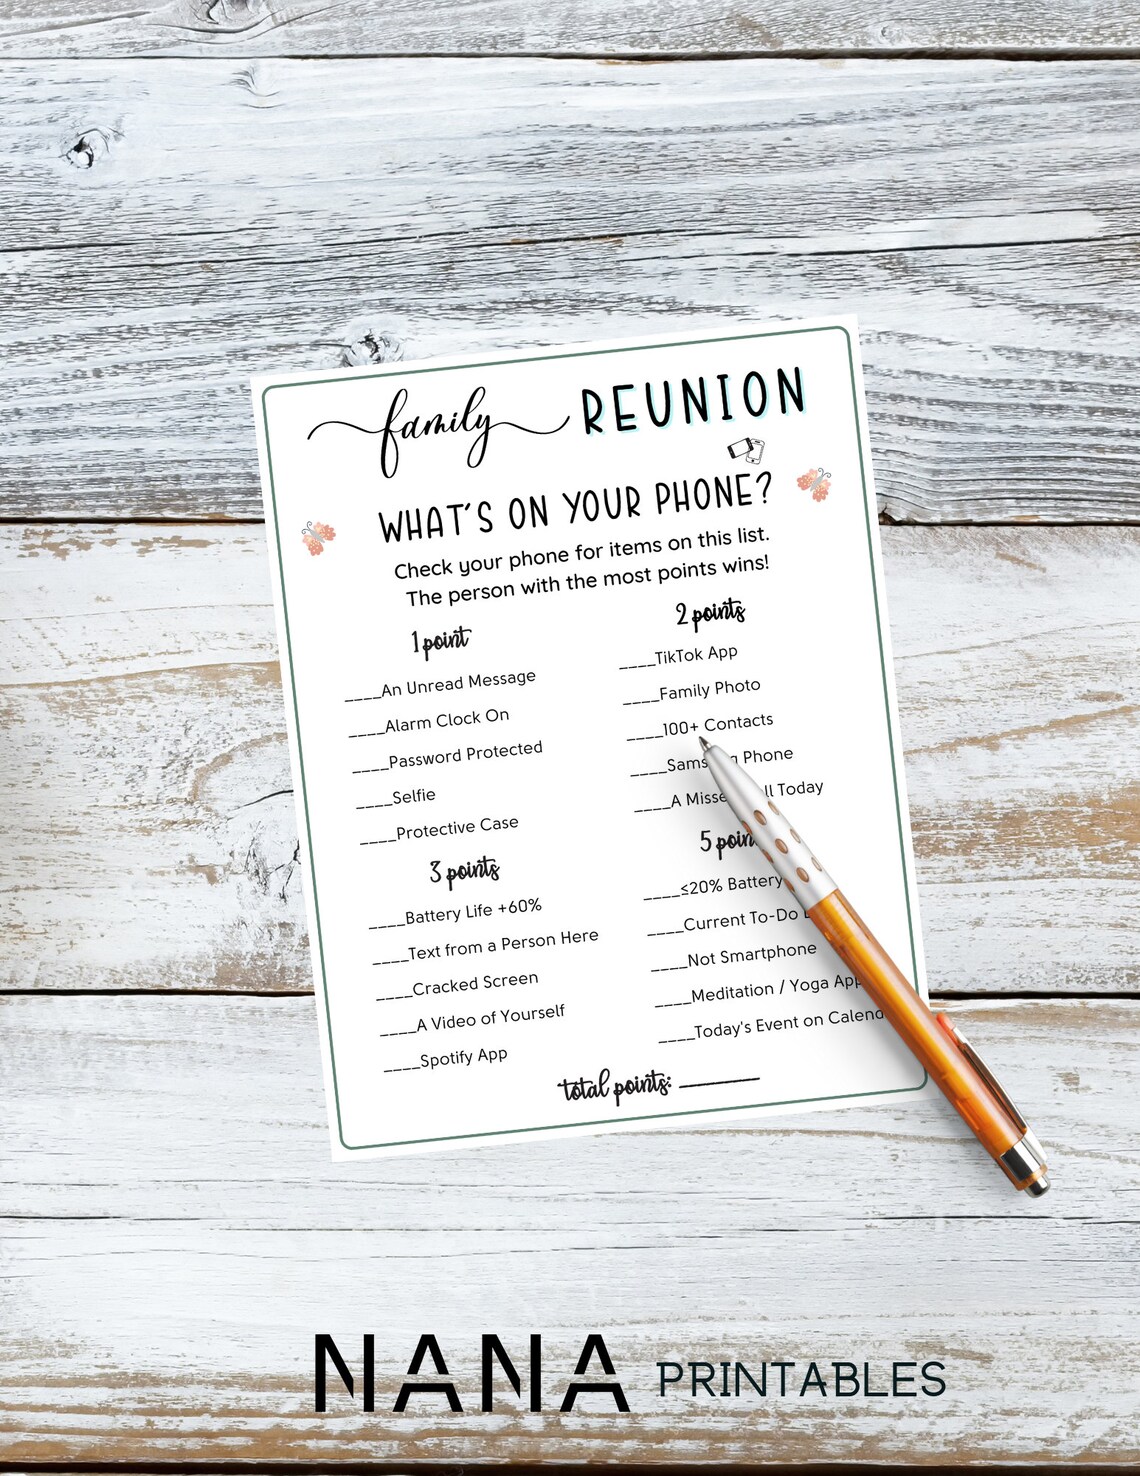 family REUNION
WHAT'S ON YOUR PHONE?
Check your phone for items on this list.
The person with the most points wins!
1 point
____An Unread Message
____Alarm Clock On
____Password Protected
____Selfie
____Protective Case
2 points
____TikTok App
____Family Photo
____100+ Contacts
____Phone
____A Today
3 points
____Battery Life +60%
____Text from a Person Here
____Cracked Screen
____A Video of Yourself
____Spotify App
5
____≤20% Battery
____Current To-Do
____Not Smartphone
____Meditation / Yoga App
____Today's Event on
total points: ______
NANA PRINTABLES